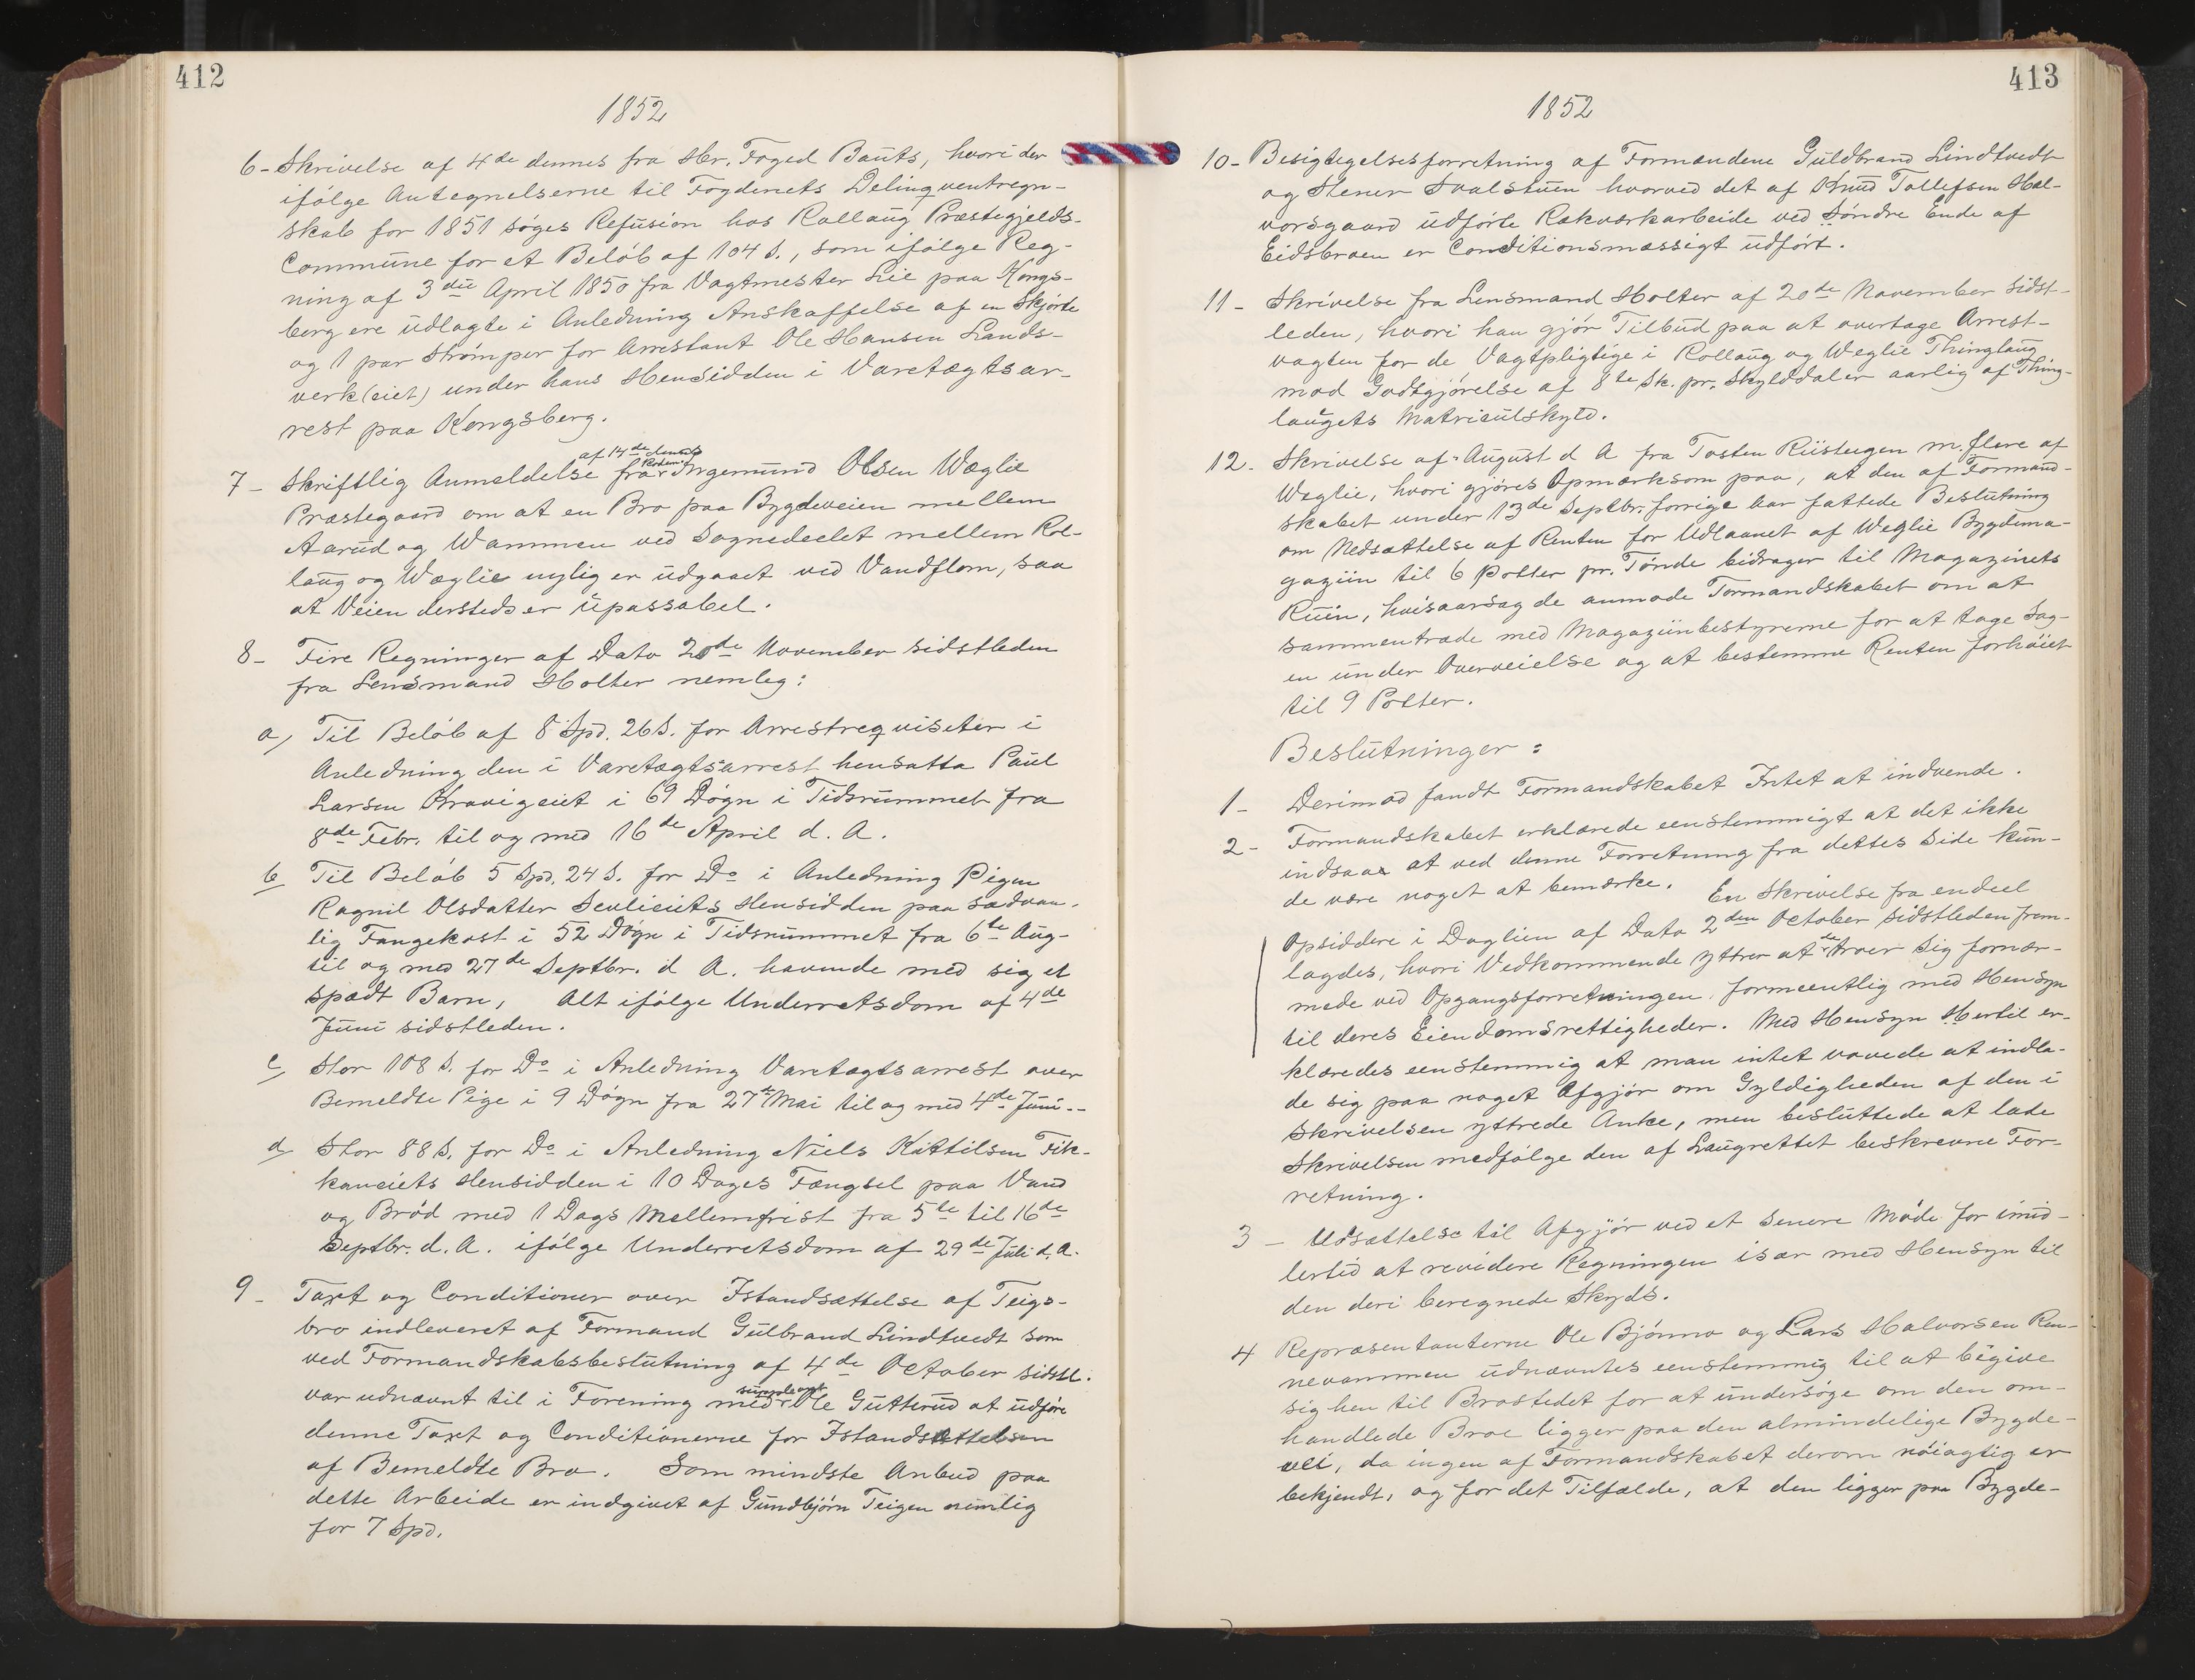 412
1852
6- Skrivelse af 4de dennes fra Hr. Foged Bauts, hvori der
ifølge Antegnelserne til Fogderiets Delinqventregn-
skab for 1851 søges Refusion hos Rollaug Præstegjelds-
Commune for et Beløb af 104 s., som ifølge Reg-
ning af 3die April 1850 fra Vagtmester Lie paa Kongs-
berg ere udlagte i Anledning Anskaffelse af en Skjorte
og 1 par Strømper for Arrestant Ole Hansen Lands-
verk(eiet) under hans Hensidden i Varetægtsar-
rest paa Kongsberg.
af 14de dennes
7- Skriftlig Anmeldelse fra Ingemund Olsen Wæglie
Præstegaard om at en Bro paa Bygdeveien mellem
Aarud og Wammen ved Sognedeelet mellem Rol-
laug og Wæglie nylig er udgaaet ved Vandflom, saa
at Veien dersteds er upassabel.
8- Fire Regninger af Dato 20de November sidstleden
fra Lensmand Holter nemleg:
a, Til Beløb af 8 Spd. 26 s. for Arrestreqvisiter i
Anledning den i Varetægtsarrest hensatte Paul
Larsen Kravigeiet i 69 Døgn i Tidsrummet fra
8de Febr. til og med 16de April d. A.
b, Til Beløb 5 Spd. 24 s. for Do i Anledning Pigen
Ragnil Olsdatter Sevlieiets Hensidden paa sædvan-
lig Fangekost i 52 Døgn i Tidsrummet fra 6te Aug-
til og med 27de Septbr. d A. havende med sig et
spædt Barn, Alt ifølge Underretsdom af 4de
Juni sidstleden.
c, Stor 108 s. for Do i Anledning Varetægtsarrest over
Bemeldte Pige i 9 Døgn fra 27de Mai til og med 4de Juni.-
d, Stor 88 s. for Do i Anledning Niels Kittilsen Fik-
kaneiets Hensidden i 10 Dages Fængsel paa Vand
og Brød med 1 Dags Mellemfrist fra 5te til 16de
Septbr. d. A. ifølge Underretsdom af 29de Juli d. A.
9- Taxt og Conditioner over Istandsættelse af Teigs-
bro indleveret af Formand Gulbrand Lindtvedt som
ved Formandskabsbeslutning af 4de October sidstl.
var udnævnt til i Forening med Ole Gutterud at udføre
denne Taxt og Conditionerne for Istandsættelsen
af Bemeldte Bro. Som mindste Anbud paa
dette Arbeide er indgivet af Gundbjørn Teigen nemlig
for 7 Spd.
413
1852
10- Besigtegelsesforretning af Formændene Guldbrand Lindtvedt
og Stener Svalstuen hvorved det af Knud Tollefsen Hal-
vorsgaard udførte Rækværkarbeide ved Søndre Ende af
Eidsbroen er Conditionsmæssigt udført.
11- Skrivelse fra Lensmand Holter af 20de November sidst-
leden, hvori han gjør Tilbud paa at overtage Arrest-
vagten for de Vagtpligtige i Rollaug og Weglie Thinglaug
mod Godtgjørelse af 8te Sk. pr. Skylddaler aarlig af Thing-
laugets Matriculskyld.
12- Skrivelse af August d A fra Tosten Riisteigen m. flere af
Weglie, hvori gjøres Opmærksom paa, at den af Formand-
skabet under 13de Septbr. forrige Aar fattede Beslutning
om Nedsættelse af Renten for Udlaanet af Weglie Bygdema-
gaziin til 6 Potter pr. Tønde bidrager til Magazinets
Ruin, hvisaarsag de anmode Formandskabet om at
sammentræde med Magaziinbestyrerne for at tage Sag-
en under Overveielse og at bestemme Renten forhøiet
til 9 Potter.
Beslutninger:
1- Derimod fandt Formandskabet Intet at indvende.
2- Formandskabet erklærede eenstemmigt at det ikke
indsaae at ved denne Forretning fra dettes Side kun-
de være noget at bemærke. En Skrivelse fra endeel
Opsiddere i Daglien af Dato 2den October sidstleden frem-
lagdes, hvori Vedkommende yttrer at de troer sig fornær-
mede ved Opgangsforretningen formeentlig med Hensyn
til deres Eiendomsrettigheder. Med Hensyn Hertil er-
klæredes eenstemmig at man intet vovede at indla-
de sig paa noget Afgjør om Gyldigheden af den i
Skrivelsen yttrede Anke, men besluttede at lade
Skrivelsen medfølge den af Laugrettet beskrevne For-
retning.
3- Udsættelse til Afgjør ved et senere Møde for imid-
lertid at revidere Regningen især med Hensyn til
den deri beregnede Skyds.
4 Repræsentanterne Ole Bjønno og Lars Halvorsen Ren-
nevammen udnævntes eenstemmig til at begive
sig hen til Brostedet for at undersøge om den om-
handlede Broe ligger paa den almindelige Bygde-
vei, da ingen af Formandskabet derom nøiagtig er
bekjendt, og for det Tilfælde, at den ligger paa Bygde-